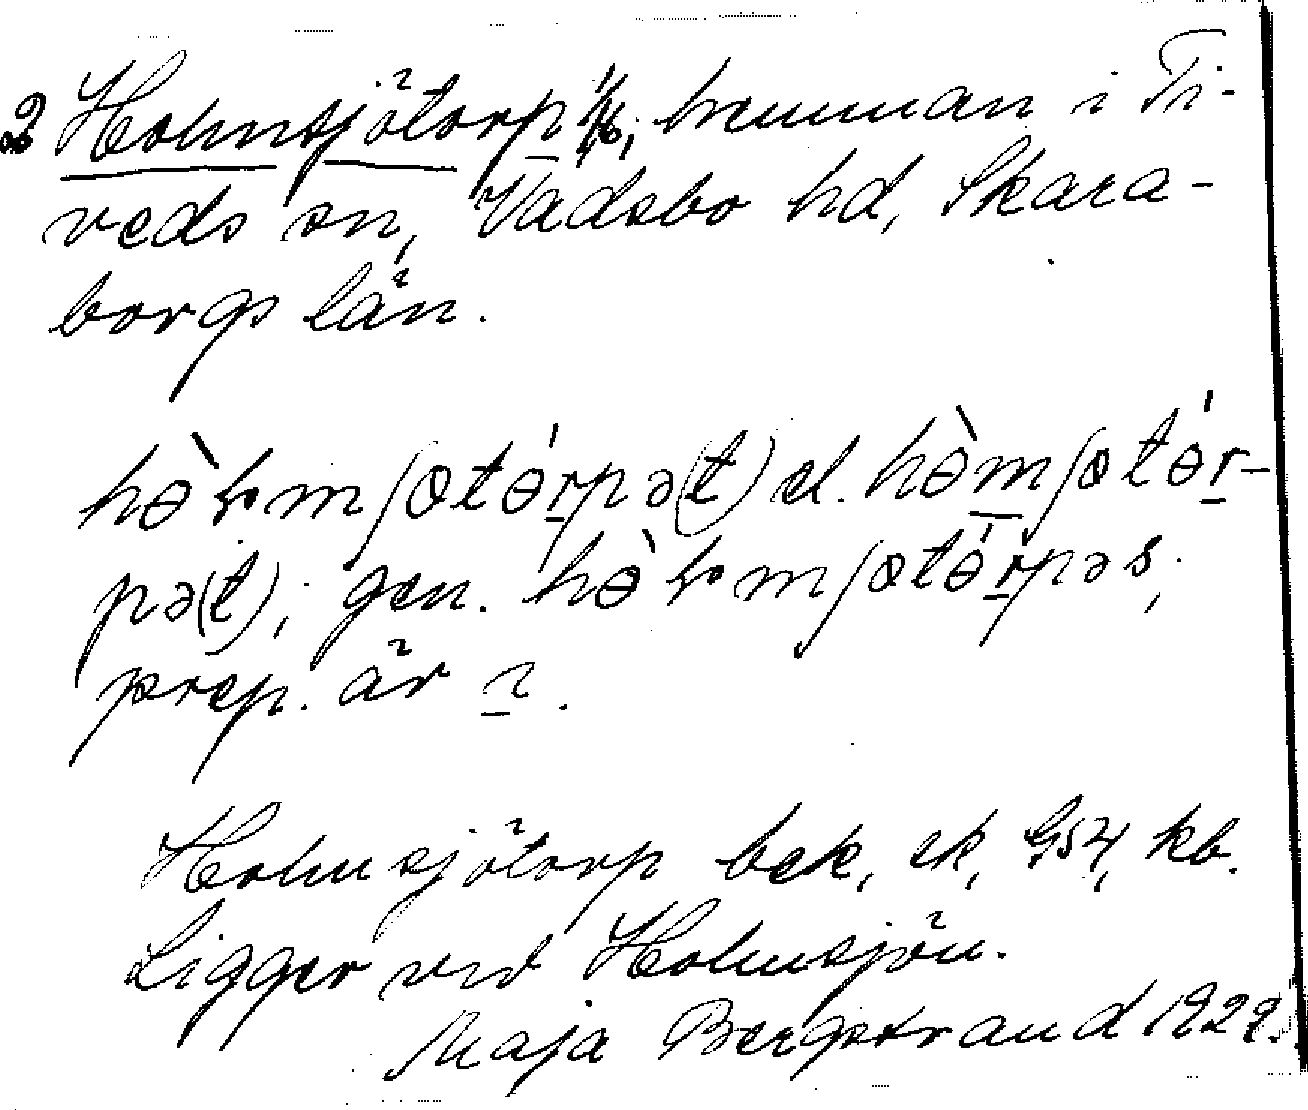 2 Holmsjötorp 1/6, hemman i Ti-
veds sn, Vadsbo hd, Skara-
borgs län.
hə̀ɽmʃɵtə́rpə(t) el. hə̀mʃɵtə́r-
pə(t); gen. hə̀ɽmʃɵtə́rpəs;
prep. är i.
Holmsjötorp bek, ek, GS4, kb.
Ligger vid Holmsjön.
Maja Bergstrand 1929.